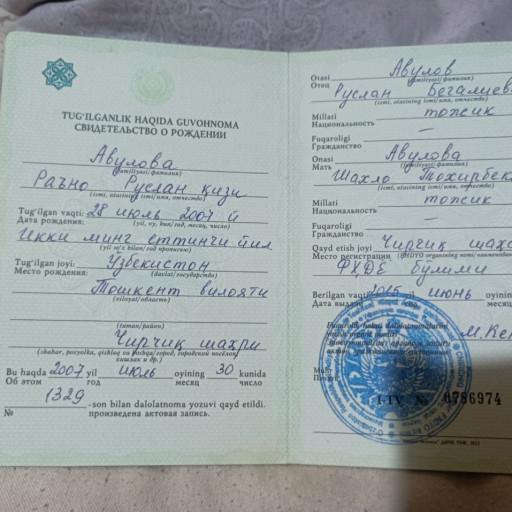 TUG'ILGANLIK HAQIDA GUVOHNOMA
СВИДЕТЕЛЬСТВО О РОЖДЕНИИ
Авулова
(familiyasi/фамилия)
Раъно Руслан қизи
(ismi, otasining ismi/имя, отчество)
Tug'ilgan vaqti: 28 июль 2007 й
Дата рождения: (yil, oy, kun/год, месяц, число)
Икки минг еттинги йил
(yil so'z bilan/год прописью)
Tug'ilgan joyi: Ўзбекистон
Место рождения: (davlat/государство)
Тошкент вилояти
(viloyat/область)
(tuman/район)
Чирчиқ шаҳри
(shahar, posyolka, qishloq va boshqa/город, городской посёлок,
кишлак и др.)
Bu haqda 2007 yil июль oyining 30 kunida
Об этом год месяц число
№ 1329 -son bilan dalolatnoma yozuvi qayd etildi.
произведена актовая запись.
Otasi Авулов
Отец (familiyasi/фамилия)
Руслан Бегалиев
(ismi, otasining ismi/имя, отчество)
Millati тожик
Национальность
Fuqaroligi —
Гражданство
Onasi Авулова
Мать (familiyasi/фамилия)
Шахло Тохирбек
(ismi, otasining ismi/имя, отчество)
Millati тожик
Национальность
Fuqaroligi —
Гражданство
Qayd etish joyi Чирчиқ шаҳ
Место регистрации
ФҲДЁ бўлими
Berilgan vaqti 2015 yil июнь oyinin
Дата выдачи год месяц
М.Кен
I-TV № 0786974